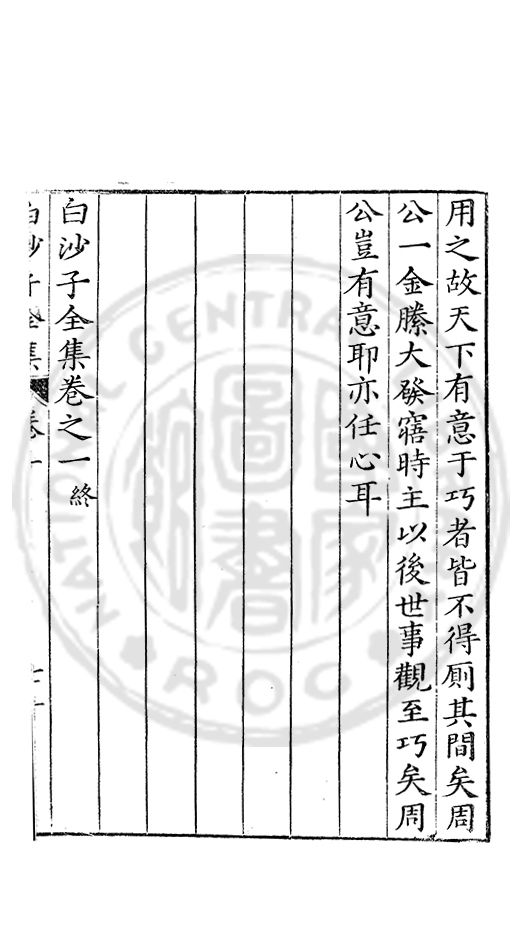 用之故天下有意于巧者皆不得厠其間矣周
公一金縢大發寤時主以後世事觀至巧矣周
公豈有意耶亦任心耳
白沙子全集卷之一終
白沙子全集 卷一
NATIONAL CENTRAL
國家圖書
ROC